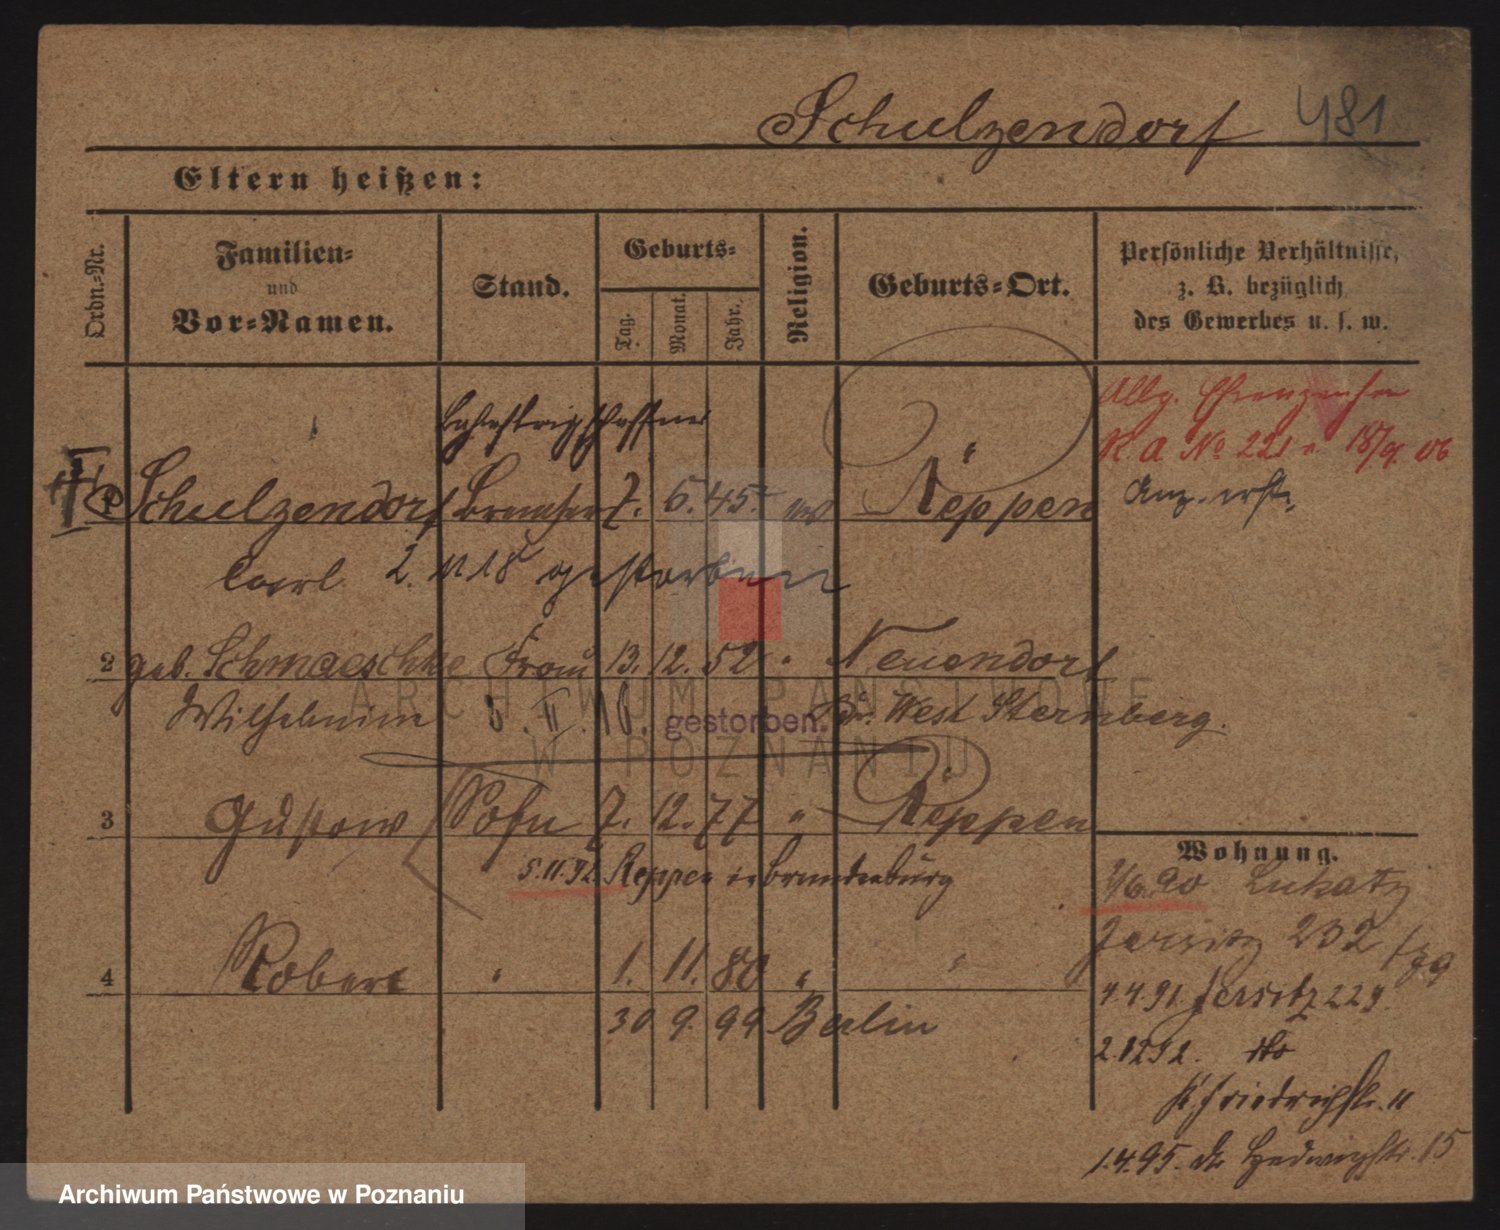 Schulzendorf 481
Eltern heißen:
Ordn.-Nr.
Familien-
und
Vor-Namen.
Stand.
Geburts-
Tag.
Monat.
Jahr.
Religion.
Geburts-Ort.
Persönliche Verhältnisse,
z. B. bezüglich
des Gewerbes u. s. w.
Allg.
K A No 221 18/9. 06
1 Schulzendorf Bremser 7. 6. 45. ev Reppen
Carl 2. 11 18 gestorben
2 geb. Schmaeschke Frau 13. 12. 52 " Neuendorf
Wilhelmine II. 16. gestorben. West Sternberg.
3 Gustav Sohn 7. 12. 77 " Reppen
5.11.92. Reppen Brandenburg
4 Robert " 1. 11. 80 " "
30 9. 99 Berlin
Wohnung.
1/6.90 Lukatz
Jersitz 232
4.4.91 Jersitz 229.
2.12 92. dto
Friedrichstr. 11
1.4.95. do Hedwigstr. 15
ARCHIWUM PAŃSTWOWE
W POZNANIU
Archiwum Państwowe w Poznaniu